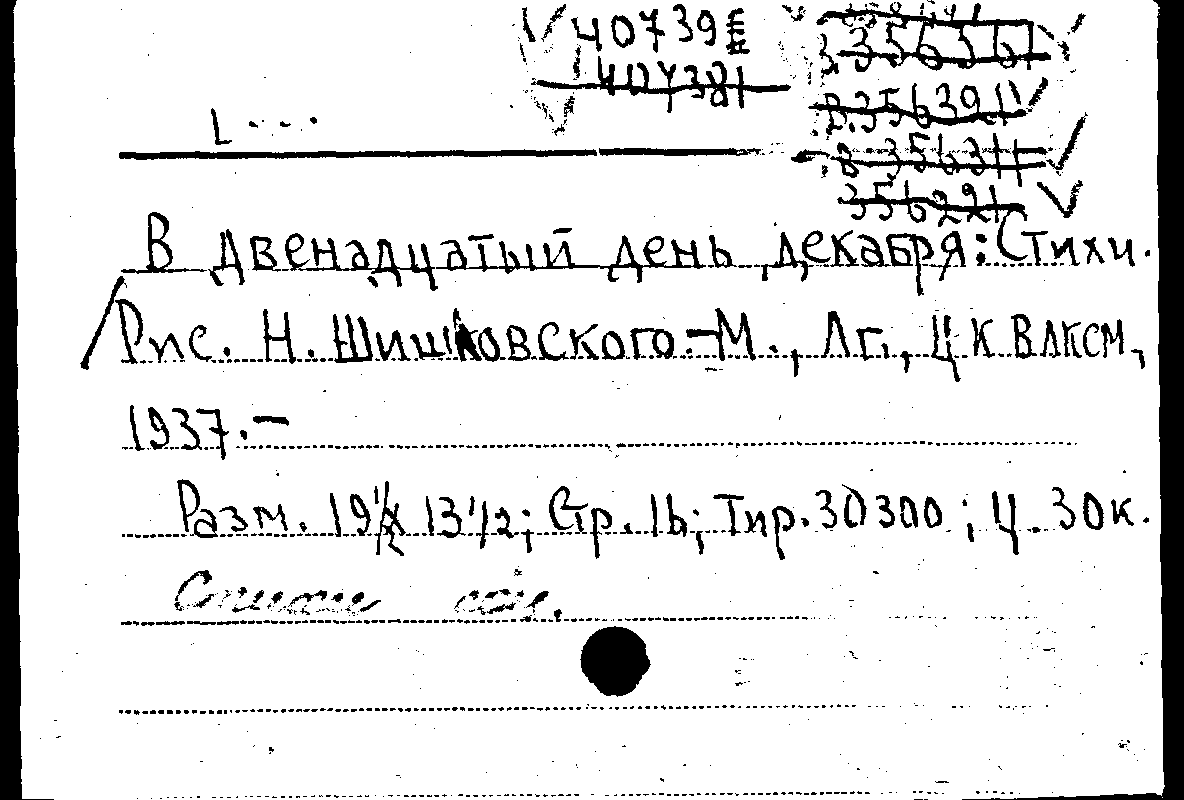 40739
407381
356361
В.356391
В.356311
356221
В двенадцатый день декабря: Стихи.
Рис. Н. Шишковского.-М., Лг., ЦК ВЛКСМ,
1937.-
Разм. 19½ x 13 1/2; Стр. 16; Тир. 30300; Ц. 30к.